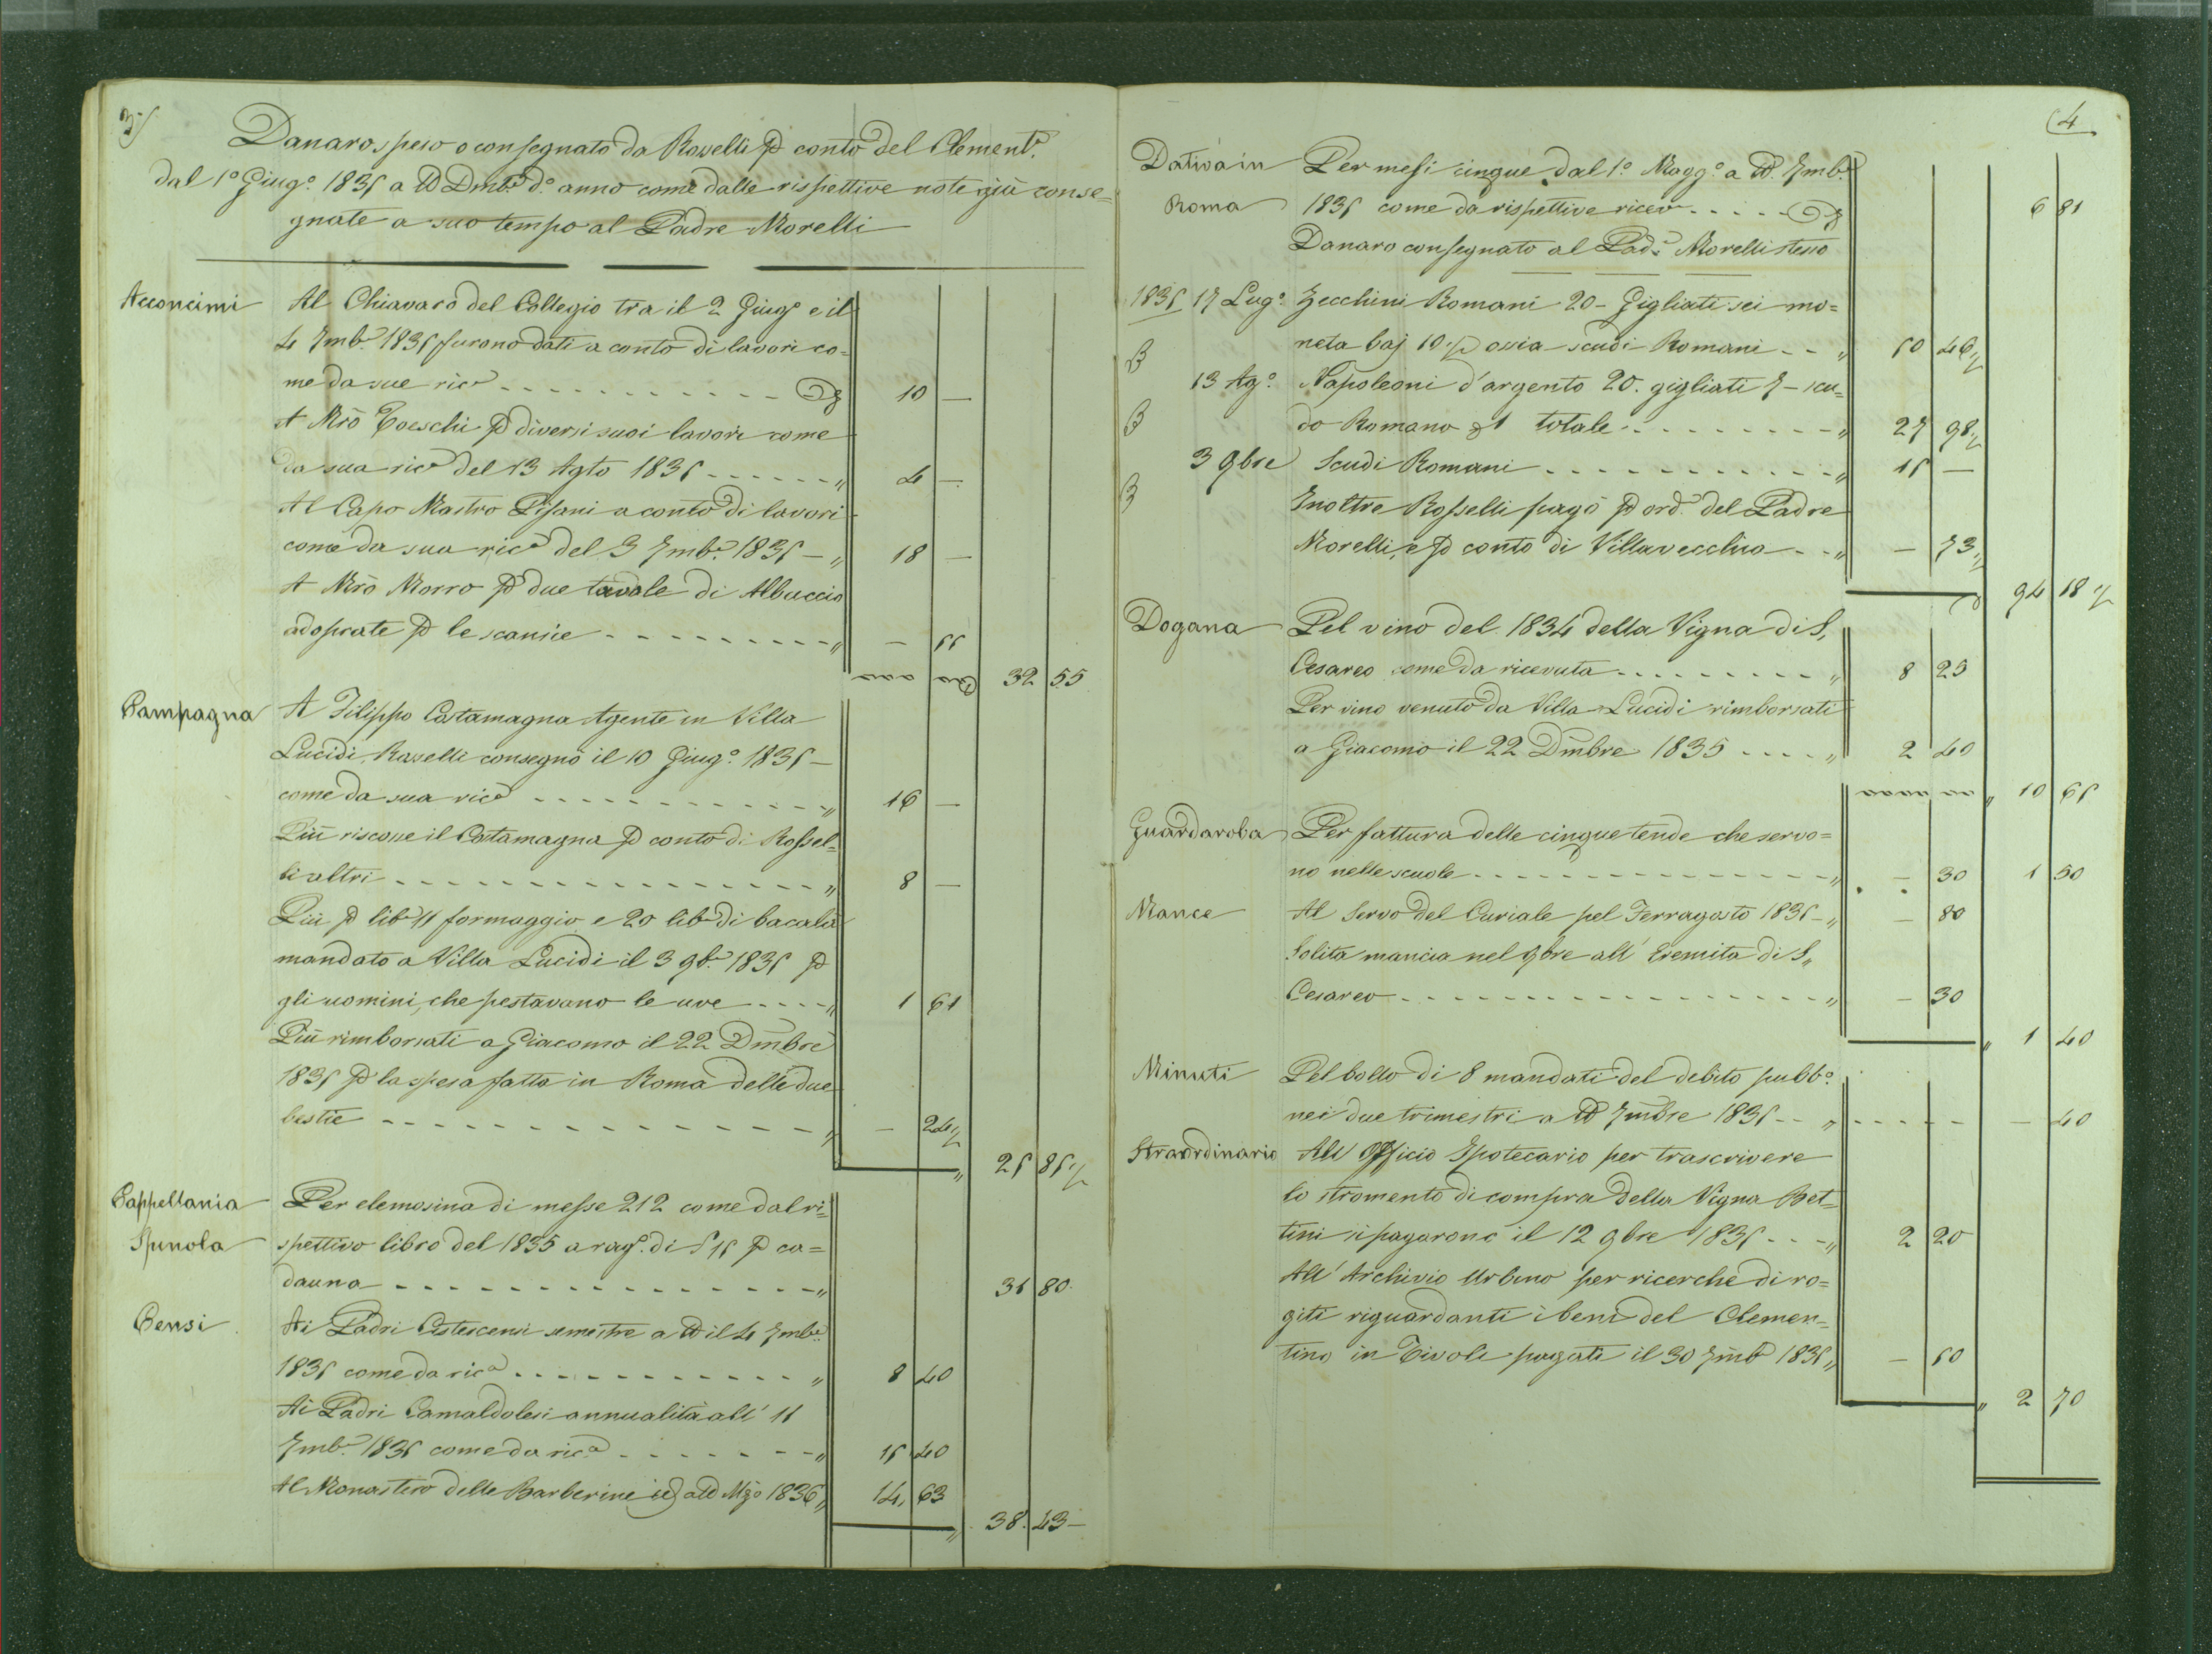 3/
Danaro speso o consegnato da Rosselli p conto del Clement.º
dal 1º Giug.º 1835 a tt Dmb.e d.º anno come dalle rispettive note già conse=
gnate a suo tempo al Padre Morelli
Acconcimi Al Chiavaro del Collegio tra il 2 Giug.º e il
4 7mb.e 1835 furono dati a conto di lavori co=
me da sue ric.e 10 —
A Mrò Toeschi p diversi suoi lavori come
da sua ric.a del 13 Agto 1835 " 4 —
Al Capo Mastro Pisani a conto di lavori
come da sua ric.a del 3 7mb.e 1835 — " 18 —
A Mrò Morro p due tavole di Albuccio
adoprate p le scansie " — 55
32 55
Campagna A Filippo Costamagna Agente in Villa
Lucidi, Rosselli consegnò il 10 Giug.º 1835 —
come da sua ric.a " 16 —
Più riscosse il Costamagna p conto di Rossel=
li altri " 8 —
Più p lib.e 11 formaggio e 20 lib.e di bacalà
mandato a Villa Lucidi il 3 9b.e 1835 p
gli uomini, che pestavano le uve " 1 61
Più rimborsati a Giacomo il 22 Dmbre
1835 p la spesa fatta in Roma delle due
bestie " — 24½
" 25 85½
Cappellania Per elemosina di messe 212 come dal ri=
Spinola spettivo libro del 1835 a rag.e di 15 p ca=
dauna " 31 80
Censi Ai Padri Cistescensi semestre a tt il 4 7mb.e
1835 come da ric.a " 8 40
Ai Padri Camaldolesi annualità all' 11
7mb.e 1835 come da ric.a " 15 40
Al Monastero delle Barberine a tt Mzo 1836 " 14 63
" 38 43 —
(4
Dativa in Per mesi cinque dal 1º Magg.º a tt 7mb.e
Roma 1835 come da rispettive ricev. 6 81
Danaro consegnato al Pad.e Morelli stesso
1835 17 Lug.º Zecchini Romani 20 – Gigliati sei mo=
neta baj 10½ ossia scudi Romani " 50 46½
B
13 Ag.º Napoleoni d'argento 20. gigliati 7 – scu=
B do Romano 1 totale " 27 98½
3 9bre Scudi Romani " 15 —
B Inoltre Rosselli pagò p ord.e del Padre
Morelli, e p conto di Villavecchia " — 73½
94 18½
Dogana Pel vino del 1834 della Vigna di S.
Cesareo come da ricevuta " 8 25
Per vino venuto da Villa Lucidi rimborsati
a Giacomo il 22 Dmbre 1835 " 2 40
" 10 65
Guardaroba Per fattura delle cinque tende che servo=
no nelle scuole " — 30 1 50
Mance Al Servo del Curiale pel Ferragosto 1835 " — 80
Solita mancia nel 9bre all' Eremita di S.
Cesareo " — 30
" 1 40
Minuti Pel bollo di 8 mandati del debito pubb.º
nei due trimestri a tt 7mbre 1835 " — 40
Straordinario All' Officio Ipotecario per trascrivere
lo stromento di compra della Vigna Bet=
tini si pagarono il 12 9bre 1835 " 2 20
All' Archivio Urbano per ricerche di ro=
giti riguardanti i beni del Clemen=
tino in Tivoli pagati il 30 7mb.e 1835 " — 50
" 2 70